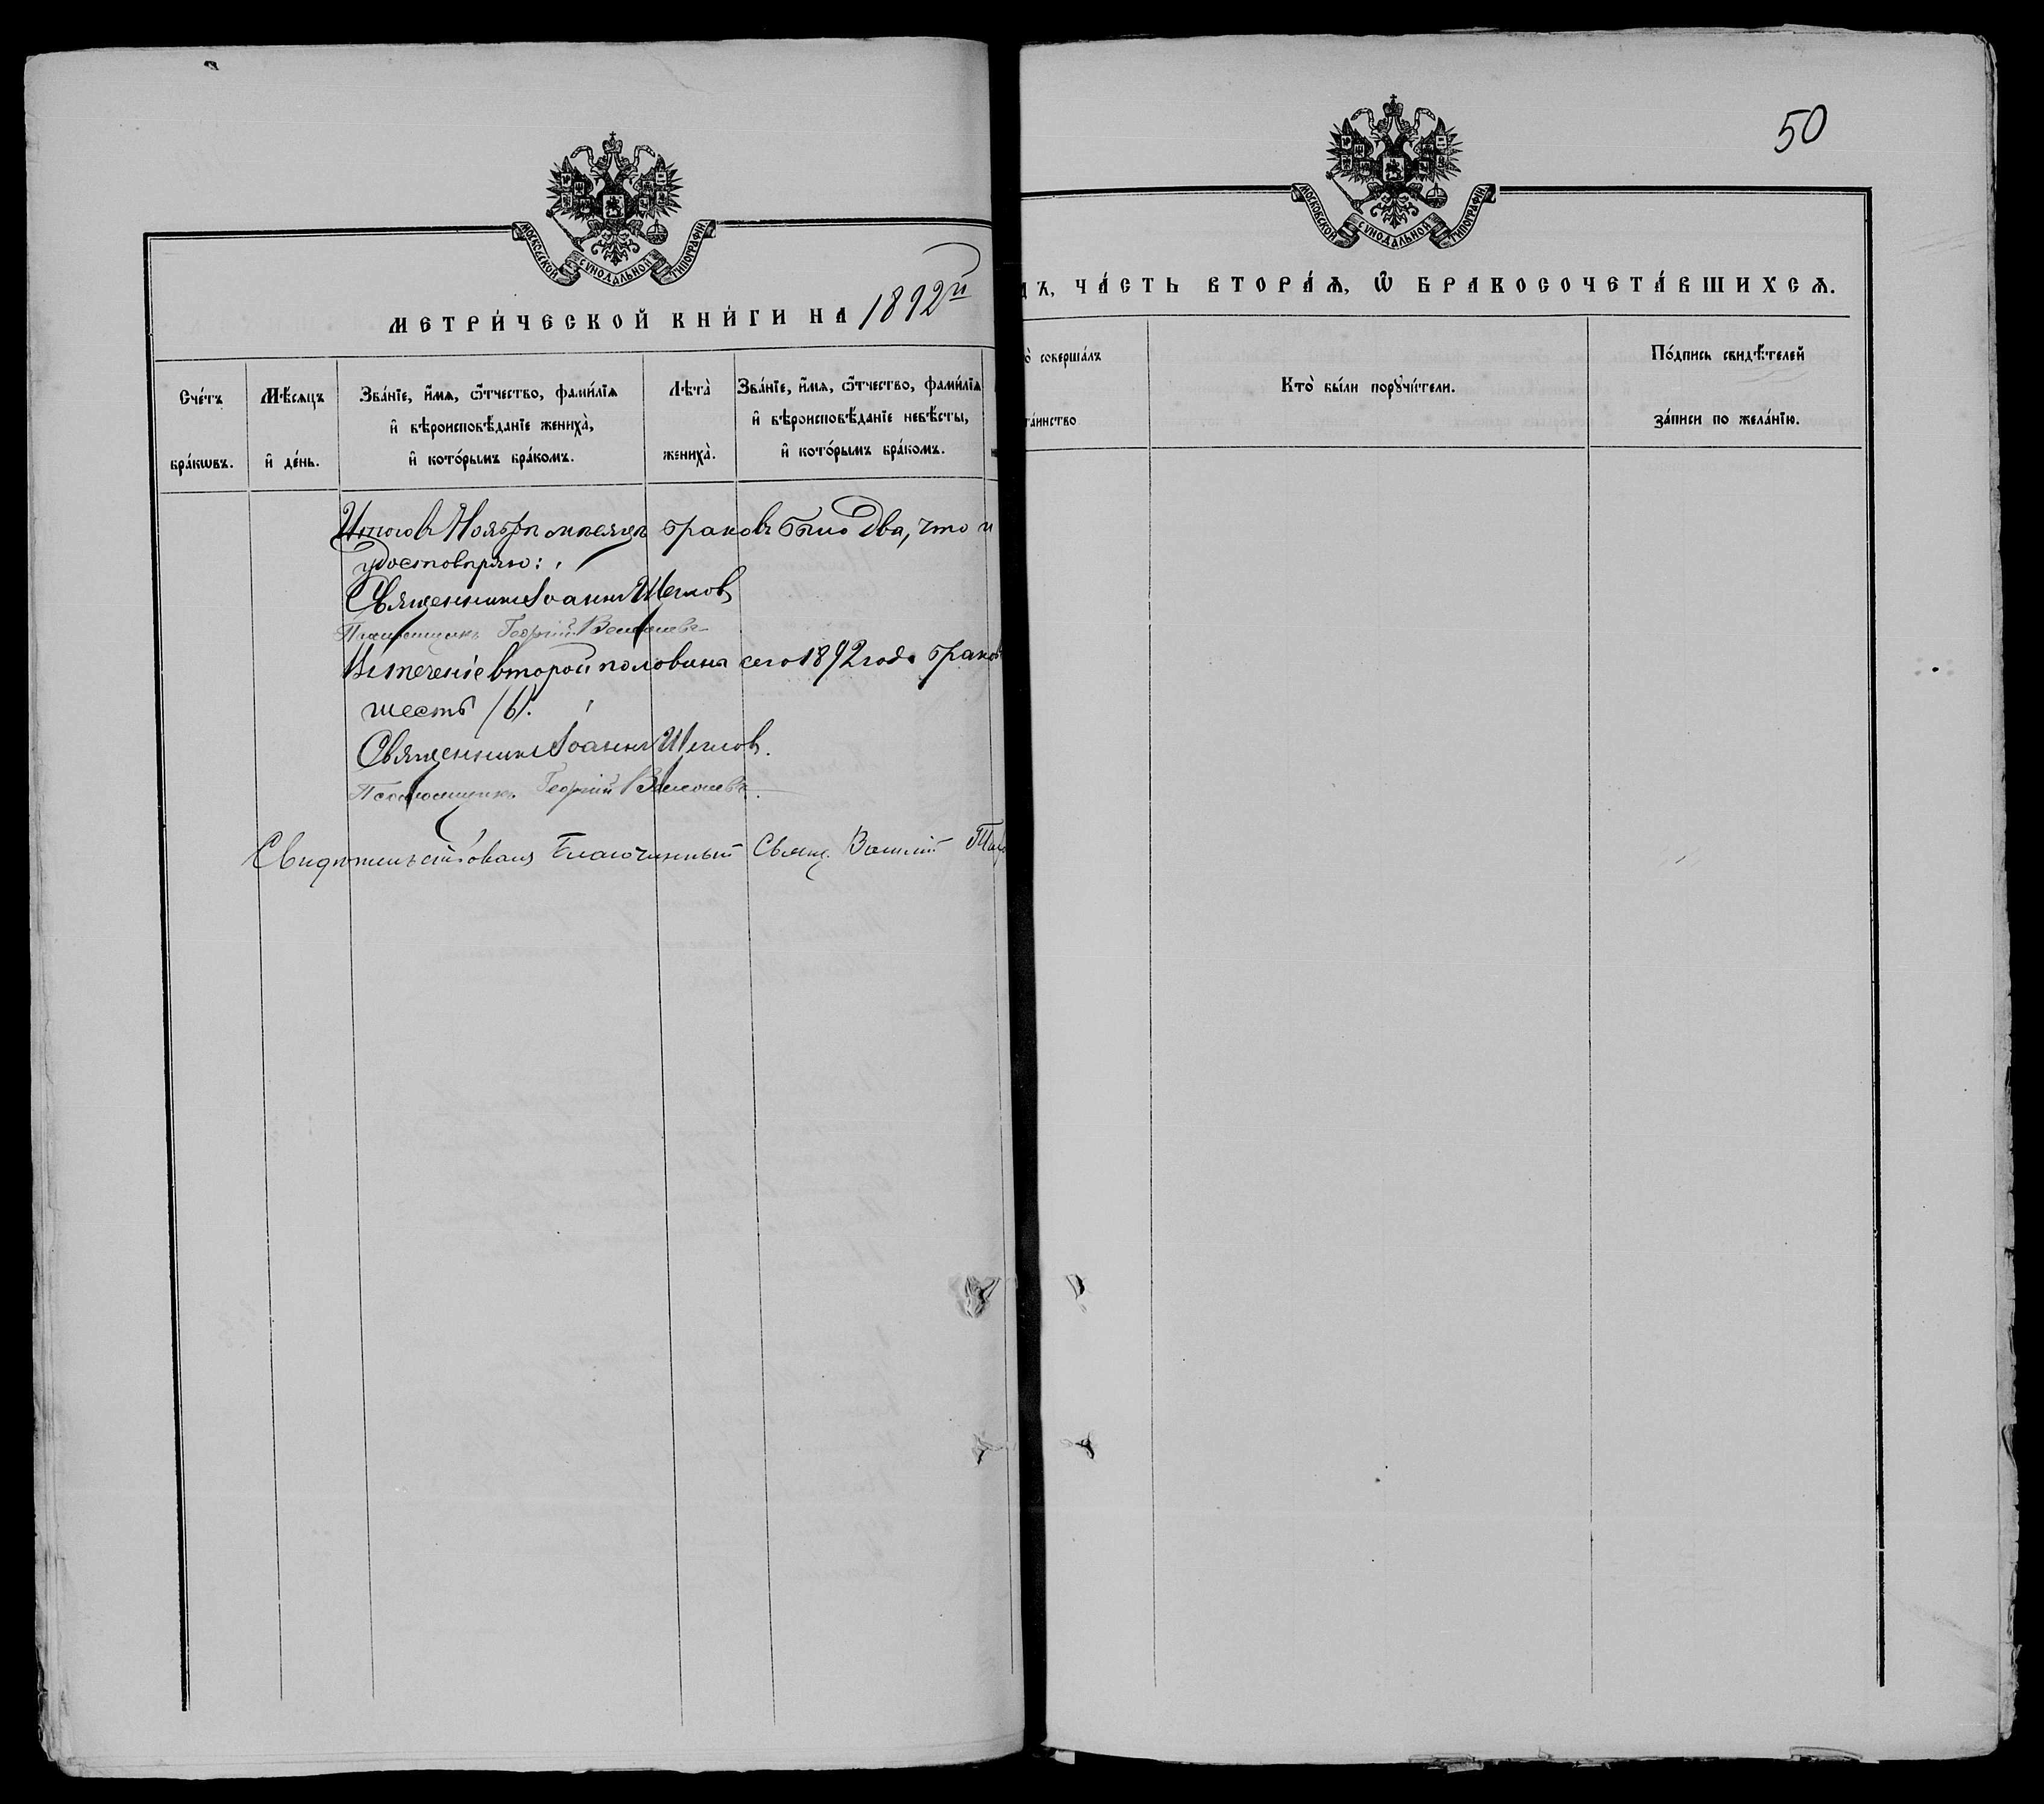 МОСКОВСКОЙ СѴНОДАЛЬНОЙ ТИПОГРАФІИ
МЕТРИ́ЧЕСКОЙ КНИ́ГИ НА 1892й
Сче́тъ бра́кѡвъ.
Мѣ́сяцъ и҆ де́нь.
Зва́нїе, и҆́мя, ѻ҆́тчество, фами́лїя
и҆ вѣроисповѣ́данїе жениха̀,
и҆ кото́рымъ бра́комъ.
Лѣта̀ жениха̀.
Зва́нїе, и҆́мя, ѻ҆́тчество, фами́лїя
и҆ вѣроисповѣ́данїе невѣ́сты,
и҆ кото́рымъ бра́комъ.
Итого въ Ноябрѣ мѣсяцѣ браковъ было два, что и
удостовѣряю:
Священникъ Іоаннъ
Псаломщикъ Георгій
Въ теченіе второй половины сего 1892 года браковъ
шесть /6/.
Священникъ Іоаннъ
Псаломщикъ Георгій
Свидѣтельствовалъ Благочинный Свящ. Василій
50
МОСКОВСКОЙ СѴНОДАЛЬНОЙ ТИПОГРАФІИ
дъ, ЧА́СТЬ ВТОРА́Я, Ѡ҆ БРАКОСОЧЕТА́ВШИХСЯ.
о̀ соверша́лъ
та́инство
Кто̀ бы́ли порꙋчи́тели.
По́дпись свидѣ́телей
за́писи по жела́нїю.